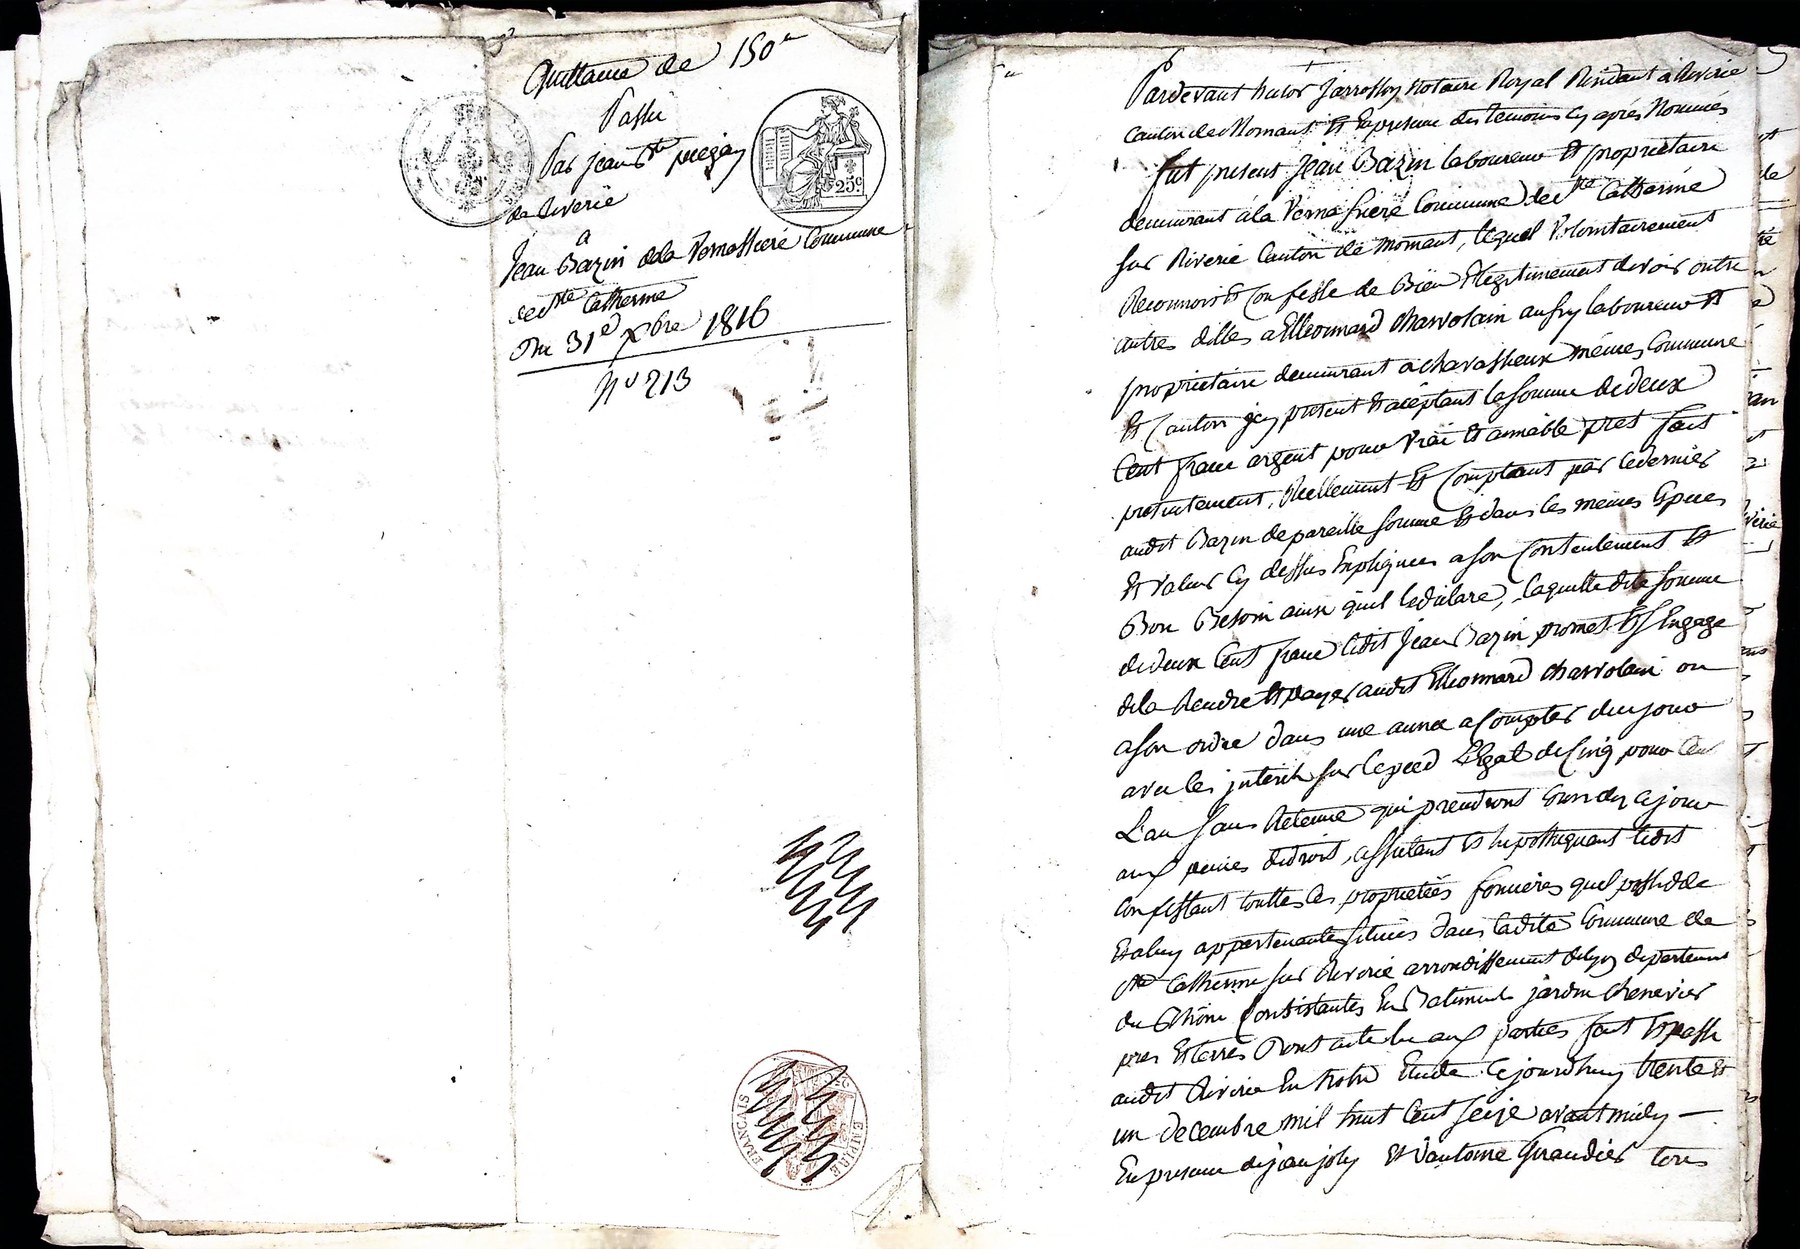 Quittance de 150 "
Passé
Par jean Bte
de Riverie
a
Jean Bazin de la Vernassiere Commune
de Ste Catherine
Du 31e Xbre 1816
No 213
25c
EMPIRE FRANCAIS
Pardevant Jarrossay Notaire Royal Résidant a Riverie
canton de Mornant Et En presence des temoins Cy après Nommés
fut present Jean Bazin laboureur Et propriétaire
demeurant à la Commune de Ste Catherine
sur Riverie Canton de Mornant, lequel Volontairement
Reconnoit Et Confesse de Bien Et legitimement devoir outre
autres dettes a Charvolain laboureur Et
propriétaire demeurant a chavassieux mêmes Commune
Et Canton jcy present Et acéptant la somme de deux
Cent franc argent pour Vrai Et amiable pret fait
presentement, Réellement Et Comptant par ce dernier
audit Bazin de pareille somme Et dans les mêmes Especes
Et valeur Cy dessus Expliquees a son Contentement Et
Bon Besoin ainsi quil le déclare, laquelle dite somme
de deux Cent franc ledit Jean Bazin promet Et S'Engage
de la Rendre Et payer audit Charvolain ou
a son ordre dans une année a Compter du jour
avec les jnterets sur le pied Légal de Cinq pour Cent
L'an sans Retenue qui prendront Cours des ce jour
aux peines de droit, affectant Et hypothequant ledit
Confessant touttes les proprietés foncières quel possede
Et a luy appartenantes situés dans ladite Commune de
Ste Catherine sur Riverie arrondissement de Lyon departement
du Rhône Consistantes En Batiment jardin chenevier
pres Et terres Dont acte lu aux parties fait Et passé
audit Riverie En notre Etude Cejourdhuy trente Et
un decembre mil huit Cent seize avant midy —
En presence de jean joly Et d'antoine Giraudier tous